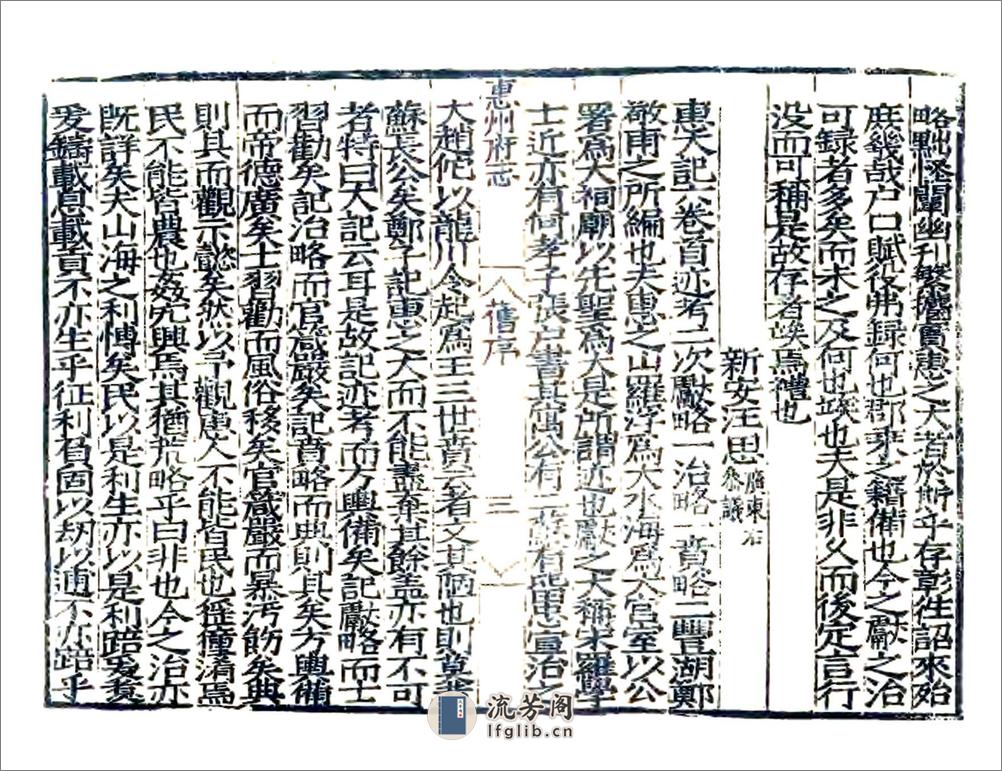 略黜怪闡幽刊繁纂實惠之大者於斯乎存彰徃詔來殆
庶幾哉户口賦役弗録何也郡乘之籍備也今之獻之治
可録者多矣而未之及何也疑也夫是非乆而後定言行
没而可稱是故存者竢焉禮也
新安汪思廣東右叅議
惠大記六卷首迹考二次獻略一治略一賁略二豐湖鄭
敬甫之所編也夫惠之山羅浮爲大水海爲大官室以公
署爲大祠廟以先聖爲大是所謂迹也獻之大稱宋羅學
士近亦有何孝子張占書其寓公有二蘇有
惠州府志
舊序
三
大趙佗以龍川令起爲王三世賁云者文其陋也則莫
蘇長公矣鄭子記惠之大而不能盡棄其餘盖亦有不可
者特曰大記云耳是故記迹考而方輿備矣記獻略而士
習勸矣記治略而官箴嚴矣記賁略而典則具矣方輿備
而帝德廣矣士習勸而風俗移矣官箴嚴而暴汚飭矣典
則具而觀示懿矣然以予觀惠大不能皆民也徭獞淆焉
民不能皆農也姦宄興焉其猶荒略乎曰非也今之治亦
既詳矣夫山海之利博矣民以是利生亦以是利踣爰煑
爰鑄載息載貢不亦生乎征利負固以刼以逋不亦踣乎
流芳阁
lfglib.cn